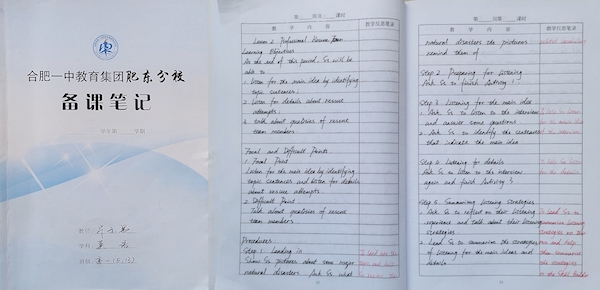 合肥一中教育集团肥东分校
备课笔记
学年第 学期
教师
学科 英语
班级 高一
第 周第 课时
教学内容
教学反思笔录
Lesson 2 Professional Rescue Team
Learning Objectives
At the end of this period, Ss will be
able to
1. listen for the main idea by identifying
topic sentences.
2. listen for details about rescue
attempts.
3. talk about qualities of rescue
team members.
Focal and Difficult Points
1. Focal Point
Listen for the main idea by identifying
topic sentences and listen for details
about rescue attempts.
2. Difficult Point
Talk about qualities of rescue
team members.
Procedures
Step 1 Leading in
Show Ss pictures about some major
natural disasters. Ask Ss what
To lead
第 周第 课时
教学内容
教学反思笔录
natural disasters the pictures
remind them of
related
Step 2 Preparing for listening
Ask Ss to finish Activity 1
Step 3 Listening for the main idea
1. Ask Ss to listen to the interview
and answer some questions
2. Ask Ss to identify the sentences
that indicate the main idea
To help Ss listen
for the main idea
Step 4 Listening for details
Ask Ss to listen to the interview
again and finish Activity 3
To help Ss listen
for the details
Step 5 Summarizing listening strategies
1. Ask Ss to reflect on their listening
experience and talk about their listening
strategies
2. Lead Ss to summarize the strategies
of listening for the main ideas and
details
To lead Ss to
summarize listening
strategies on their
own and help
them summarize
the strategies
in the Skill Builder